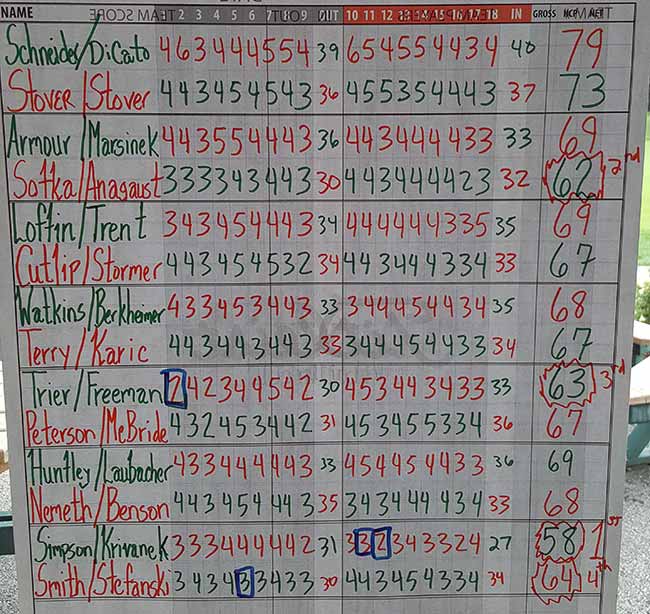 NAME 2 3 4 5 6 7 8 9 OUT 10 11 12 13 14 15 16 17 18 IN GROSS HCP NET
Schneider/DiCato 4 6 3 4 4 4 5 5 4 39 6 5 4 5 5 4 4 3 4 40 79
Stover/Stover 4 4 3 4 5 4 5 4 3 36 4 5 5 3 5 4 4 4 3 37 73
Armour/Marsinek 4 4 3 5 5 4 4 4 3 36 4 4 3 4 4 4 4 3 3 33 69
Sotka/Anagaust 3 3 3 3 4 3 4 4 3 30 4 4 3 4 4 4 4 2 3 32 62 2nd
Loftin/Trent 3 4 3 4 5 4 4 4 3 34 4 4 4 4 4 4 3 3 5 35 69
Cutlip/Stormer 4 4 3 4 5 4 5 3 2 34 4 4 3 4 4 4 3 3 4 33 67
Watkins/Berkheimer 4 3 3 4 5 3 4 4 3 33 3 4 4 4 5 4 4 3 4 35 68
Terry/Karic 4 4 3 4 4 3 4 4 3 33 3 4 4 4 5 4 4 3 3 34 67
Trier/Freeman 2 4 2 3 4 4 5 4 2 30 4 5 3 4 4 3 4 3 3 33 63 3rd
Peterson/McBride 4 3 2 4 5 3 4 4 2 31 4 5 3 4 5 5 3 3 4 36 67
Huntley/Laubacher 4 3 3 4 4 4 4 4 3 33 4 5 4 4 5 4 4 3 3 36 69
Nemeth/Benson 4 4 3 4 5 4 4 4 3 35 3 4 3 4 4 4 4 3 4 33 68
Simpson/Krivanek 3 3 3 4 4 4 4 4 2 31 3 3 2 3 4 3 3 2 4 27 58 1st
Smith/Stefanski 3 4 3 4 3 3 4 3 3 30 4 4 3 4 5 4 3 3 4 34 64 4th